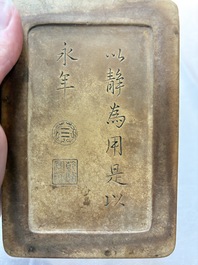 以静為用是以
永年